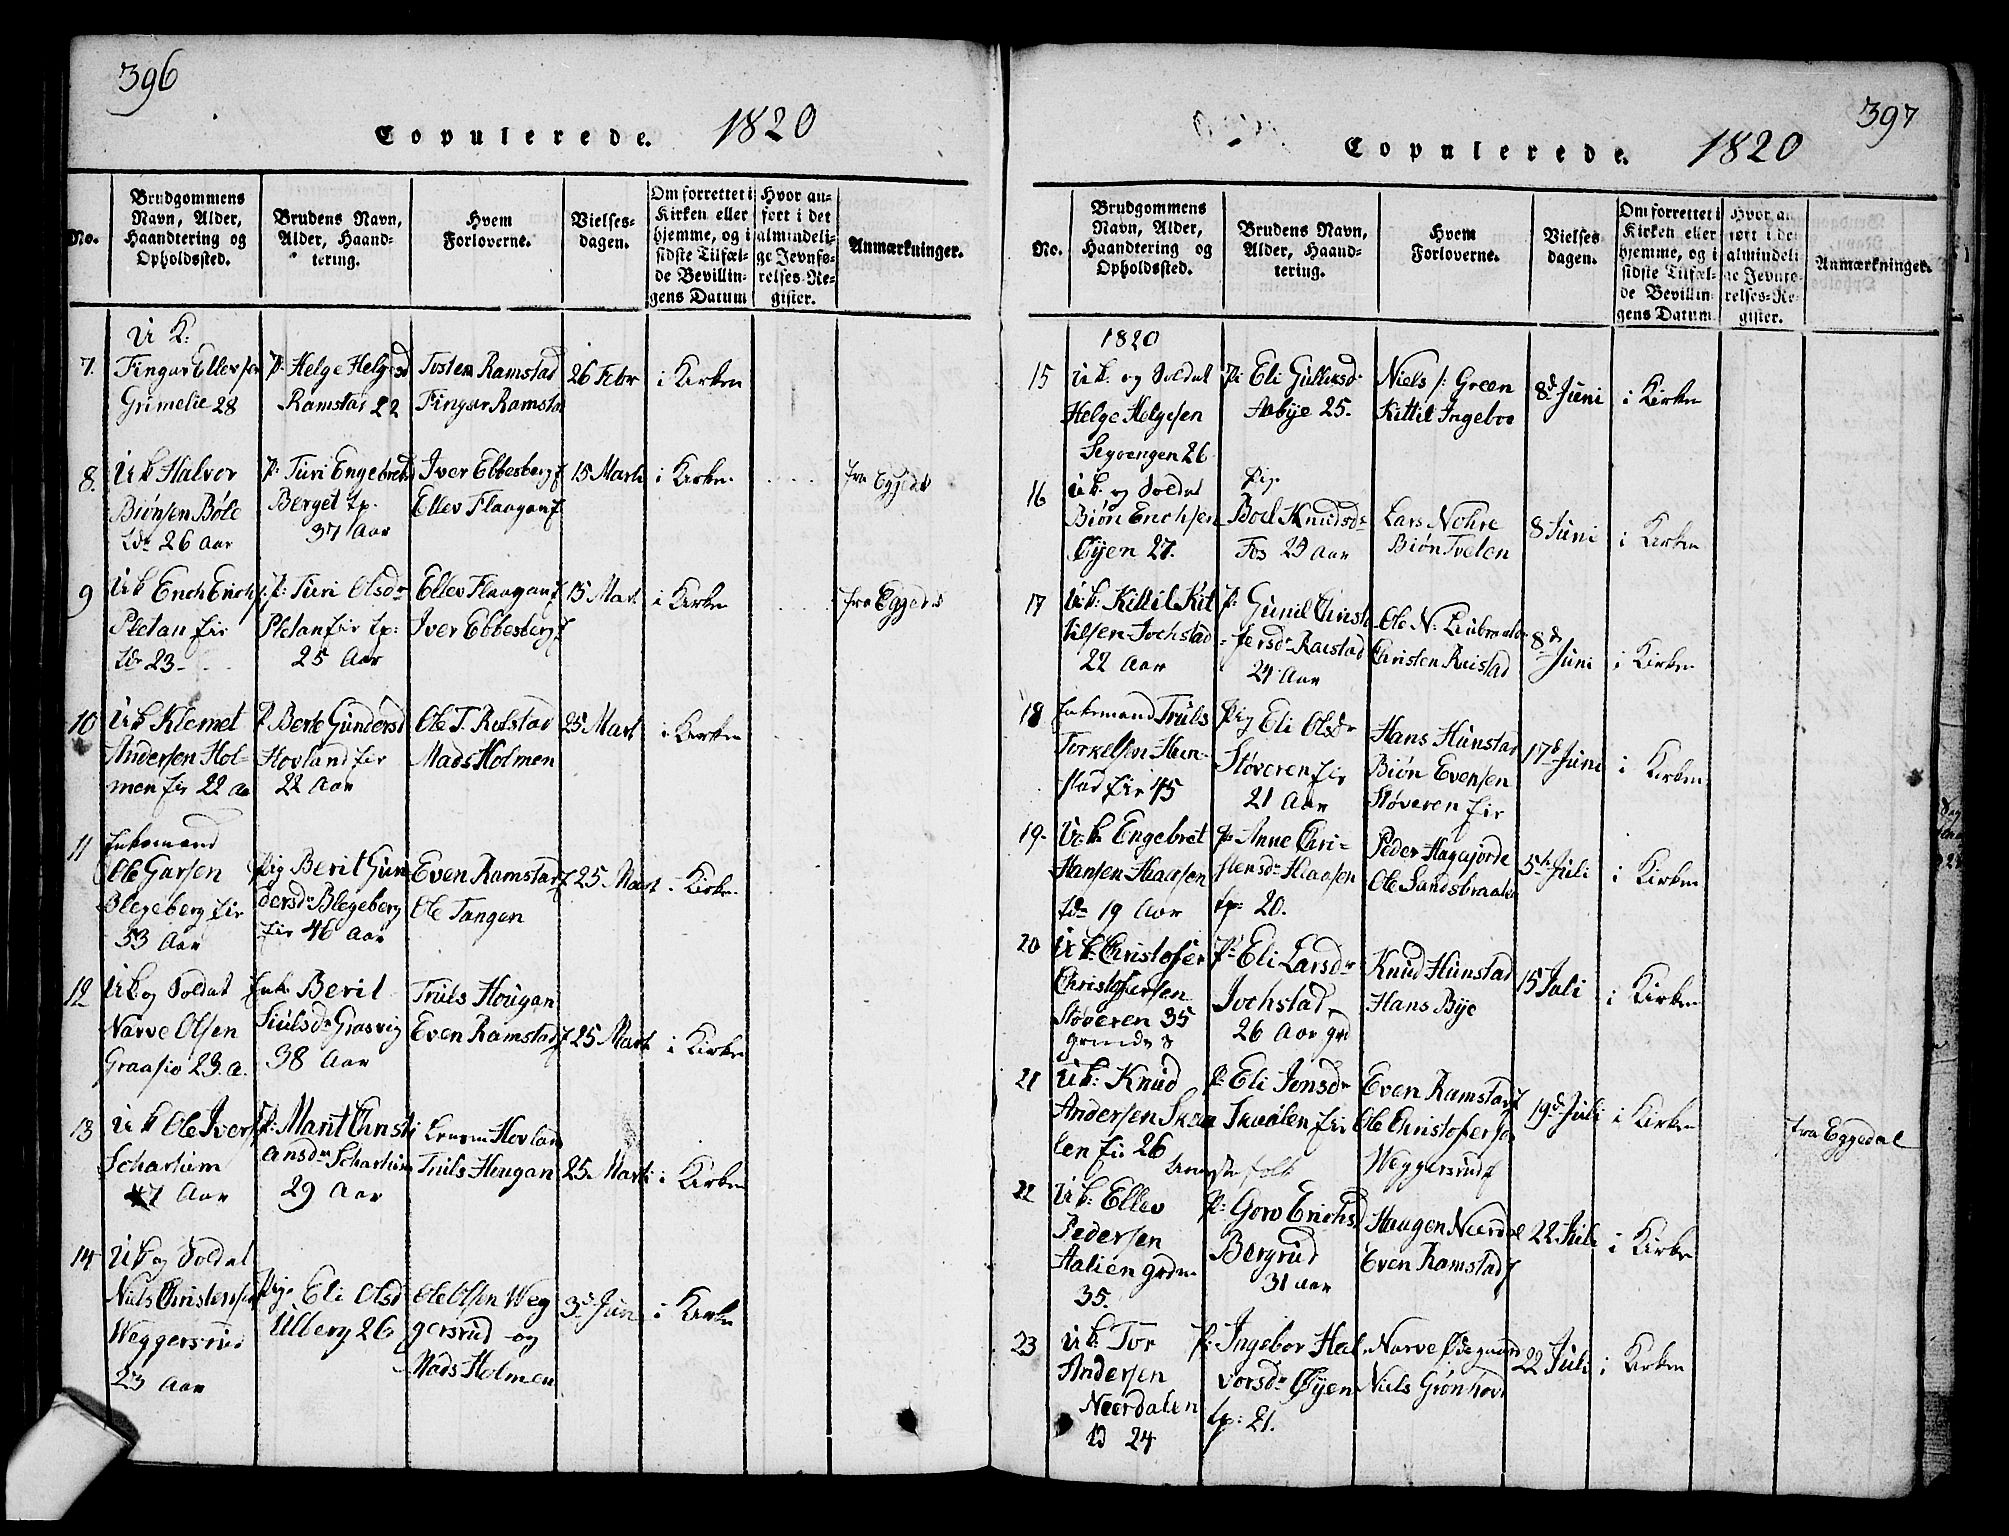 396
Copulerede. 1820
No.
Brudgommens
Navn, Alder,
Haandtering og
Opholdssted.
Brudens Navn,
Alder, Haand-
tering.
Hvem
Forloverne.
Vielses-
dagen.
Om forrettet i
Kirken eller
hjemme, og i
sidste Tilfæl-
de Bevillin-
gens Datum
Hvor an-
ført i det
almindeli-
ge Jevnfø-
relses-Re-
gister.
Anmærkninger.
7.
U K:
Fingar Ellevsen
Grimelie 28
P: Helge Helgesd
Ramstad 22
Tosten Ramstad
Fingar Ramsta
26 Febr
i Kirken
8.
U k Halvor
Biønsen Böle
26 Aar
P: Turi Engebretsd
Berget tp.
37 Aar
Iver Ebbesberg f
Ellev Flaagan f
15 Marti
i Kirken
fra Eggedal
9
U k Erich Erichs
Pletan fir
23
p: Turi Olsdr
Pletan fir tp:
25 Aar
Ellev Flaagan f
Iver Ebbesberg f
15 Mart
i Kirken
fra Eggedal
10
U k Klemet
Andersen Hol-
men fir 22 a
P Berte Gundersd
Hovland fir
22 Aar
Ole T. Rolstad
Mads Holmen
25 Mart
i Kirken
11
Enkemand
Ole Garsen
Blegeberg fir
53 Aar
Pig Berit Gun
dersdr Blegeberg
fir 46 aar
Even Ramstad f
Ole Tangen
25 Mart
i Kirken
12
U k og Soldat
Narve Olsen
Graasio 23. a.
Enk: Berit
Grasvig
38 Aar
Truls Hougan
Even Ramstad f
25 Mart
i Kirken
13
U k Ole Ivers
Schartum
27 Aar
P: Marit Christi
ansdr Schartum
29 Aar
Hovland
Truls Hougan
25. Marti
i Kirken
14
U k og Soldat
Niels Christensen
Weggersrud
23 Aar
Pig. Eli Olsd
Ulberg 26
Ole Olsen Weg
gersrud og
Mads Holmen
3d Jun
i Kirken
397
Copulerede. 1820
No.
Brudgommens
Navn, Alder,
Haandtering og
Opholdssted.
Brudens Navn,
Alder, Haand-
tering.
Hvem
Forloverne.
Vielses
dagen.
Om forrettet i
Kirken eller
hjemme, og i
sidste Tilfæl-
de Bevillin-
gens Datum.
Hvor an
ført i det
almindeli
ge Jevnfø-
relses-Re-
gister.
Anmærkninger.
1820
15
U k. og Soldat
Helge Helgesen
Segvengen 26
P: Eli Gulliksd:
Aabye 25.
Niels s: Green
Kittil Ingeboe
8d Juni
i Kirken
16
U k. og Soldat
Biøn Erichsen
Øyen 27.
Pig.
Boel Knudsdr
Fos 23 aar
Lars Nohre
Biøn Tvelen
8 Juni
i Kirken
17
U k: Kittil Kit
tilsen Jochstad
22 Aar
P: Gunil Christ
fersdr Raestad
24 Aar
Ole N. Liubraaten
Christen Reistad
8d Juni
i Kirken
18
Enkemand Truls
Torkelsen Hun-
stad fir 45
Pig Eli Olsdr
Støveren fir
21 Aar
Hans Hunstad
Biøn Evensen
Støveren fir
17d Juni
i Kirken
19.
U k. Engebret
Hansen Haasen
19 Aar
P: Anne Chri-
stensdr Haasen
tp: 20.
Peder Hagajorde
Ole Sandsbraaten
5te Juli
i Kirken
20
U k: Christofer
Christofersen
Støveren 35
P: Eli Larsdr
Jochstad
26 Aar grd
Knud Hunstad
Hans Bye
15 Juli
i Kirken
21
U k: Knud
Andersen Skaa
len fir 26
P: Eli Jonsdr
Skaalen fir
Even Ramstad f
Ole Christofersen
Weggersrud f
19d Juli
i Kirken
fra Eggedal
22
U k: Ellev
Pedersen
Aalien grdm
35.
P: Goro Erichsd
Bergrud
31 aar
Haagen Neerdal
Even Ramstad f
22 Juli
i Kirken
23
U k: Tor
Andersen
Neerdalen
24
P: Ingebor Hal
vorsdr Øyen
tp: 21.
Narve Ødegaard
Niels Grønhovd
22 Juli
i Kirken